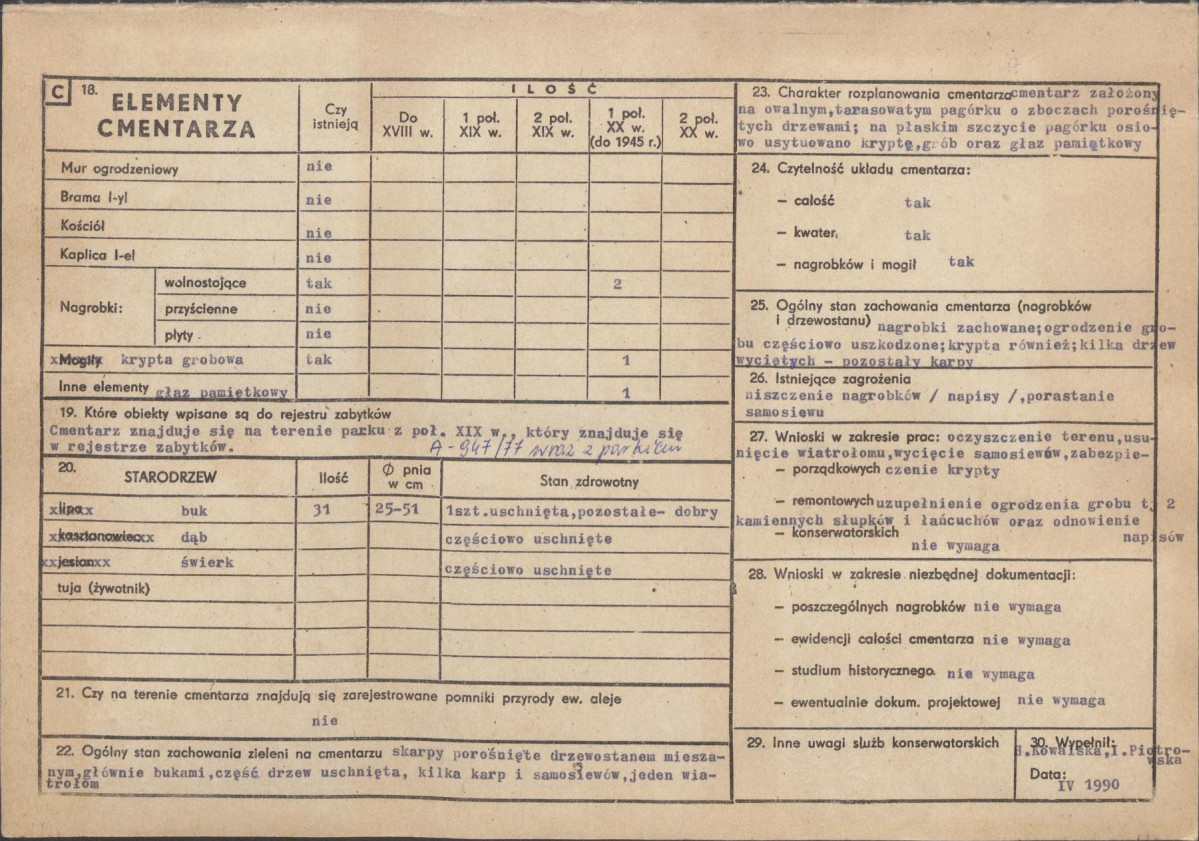 C 18. ELEMENTY CMENTARZA
Czy istnieją
ILOŚĆ
Do XVIII w.
1 poł. XIX w.
2 poł. XIX w.
1 poł. XX w. (do 1945 r.)
2 poł. XX w.
Mur ogrodzeniowy nie
Brama I-yl nie
Kościół nie
Kaplica I-el nie
Nagrobki: wolnostojące tak 2
przyścienne nie
płyty nie
Mogiły krypta grobowa tak 1
Inne elementy głaz pamiętkowy 1
19. Które obiekty wpisane są do rejestru zabytków
Cmentarz znajduje się na terenie parku z poł. XIX w., który znajduje się
w rejestrze zabytków. A-947/77 wraz z parkiem
20. STARODRZEW Ilość Ø pnia w cm Stan zdrowotny
lipa buk 31 25-51 1szt.uschnięta,pozostałe- dobry
kasztanowiec dąb częściowo uschnięte
jesion świerk częściowo uschnięte
tuja (żywotnik)
21. Czy na terenie cmentarza znajdują się zarejestrowane pomniki przyrody ew. aleje
nie
22. Ogólny stan zachowania zieleni na cmentarzu skarpy porośnięte drzewostanem miesza-
nym,głównie bukami,część drzew uschnięta, kilka karp i samosiewów,jeden wia-
trołom
23. Charakter rozplanowania cmentarza cmentarz założony
na owalnym,tarasowatym pagórku o zboczach porośnię-
tych drzewami; na płaskim szczycie pagórku osio-
wo usytuowano kryptę,grób oraz głaz pamiątkowy
24. Czytelność układu cmentarza:
— całość tak
— kwater, tak
— nagrobków i mogił tak
25. Ogólny stan zachowania cmentarza (nagrobków
i drzewostanu) nagrobki zachowane;ogrodzenie gro-
bu częściowo uszkodzone;krypta również;kilka drzew
wyciętych - pozostały karpy
26. Istniejące zagrożenia
niszczenie nagrobków / napisy /,porastanie
samosiewu
27. Wnioski w zakresie prac: oczyszczenie terenu,usu-
nięcie wiatrołomu,wycięcie samosiewów,zabezpie-
— porządkowych czenie krypty
— remontowych uzupełnienie ogrodzenia grobu tj 2
kamiennych słupków i łańcuchów oraz odnowienie
— konserwatorskich napisów
nie wymaga
28. Wnioski w zakresie niezbędnej dokumentacji:
— poszczególnych nagrobków nie wymaga
— ewidencji całości cmentarza nie wymaga
— studium historycznego. nie wymaga
— ewentualnie dokum. projektowej nie wymaga
29. Inne uwagi służb konserwatorskich
30. Wypełnił:
H.Kowalska,I.Piotro-
wska
Data:
IV 1990